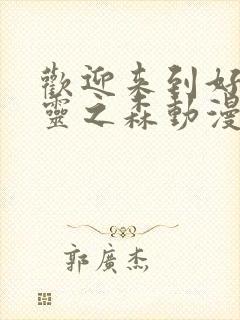 歡迎来到好
靈之森動漫
郭廣杰